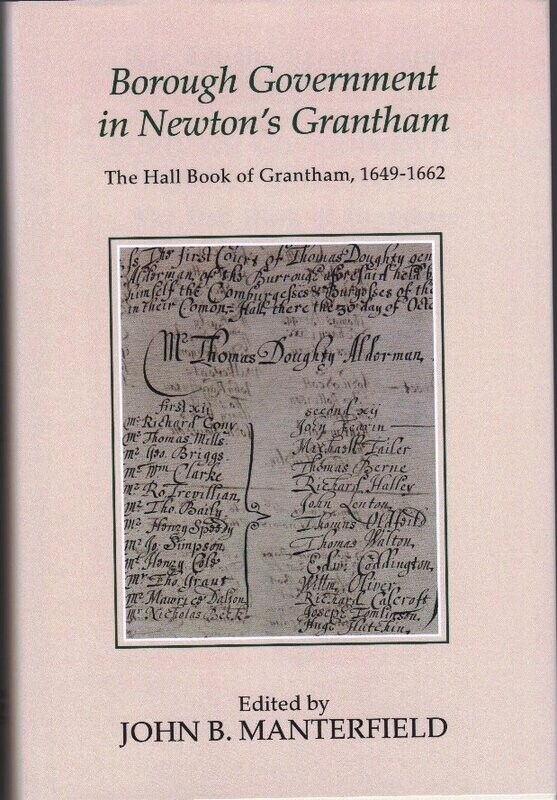 Borough Government
in Newton's Grantham
The Hall Book of Grantham, 1649-1662
The first Court of Thomas Doughty gen
Alderman of the Burrough aforesaid held by
himself the Comburgesses & Burgesses of the
in their Comon Hall there the 30 day of Octo
Mr Thomas Doughty Alderman
first xij
Mr Richard Cony
Mr Thomas Mills
Mr Geo. Briggs
Mr Wm Clarke
Mr Ro Trevillian
Mr Tho. Baily
Mr Henry Speedy
Mr Jo. Simpson
Mr Henry Cole
Mr Tho. Grant
Mr Maurice Dalton
Mr Nicholas Beck
second xij
John
Michaell Tailer
Thomas Berne
Richard Halley
John Lenton
Thomas Walton
Edw. Coddington
Willm Oliver
Richard Calcroft
Joseph Tomlinson
Hugh Hutchin
Edited by
JOHN B. MANTERFIELD